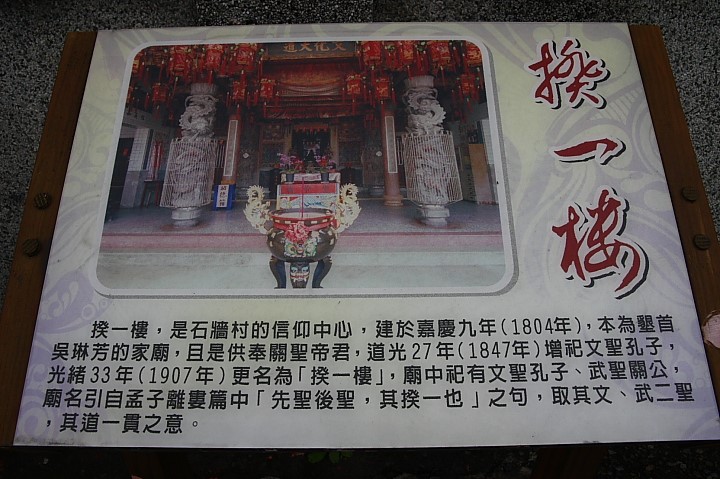 揆一樓
揆一樓，是石牆村的信仰中心，建於嘉慶九年(1804年)，本為墾首
吳琳芳的家廟，且是供奉關聖帝君，道光27年(1847年)增祀文聖孔子，
光緒33年(1907年)更名為「揆一樓」，廟中祀有文聖孔子、武聖關公，
廟名引自孟子離婁篇中「先聖後聖，其揆一也」之句，取其文、武二聖
，其道一貫之意。